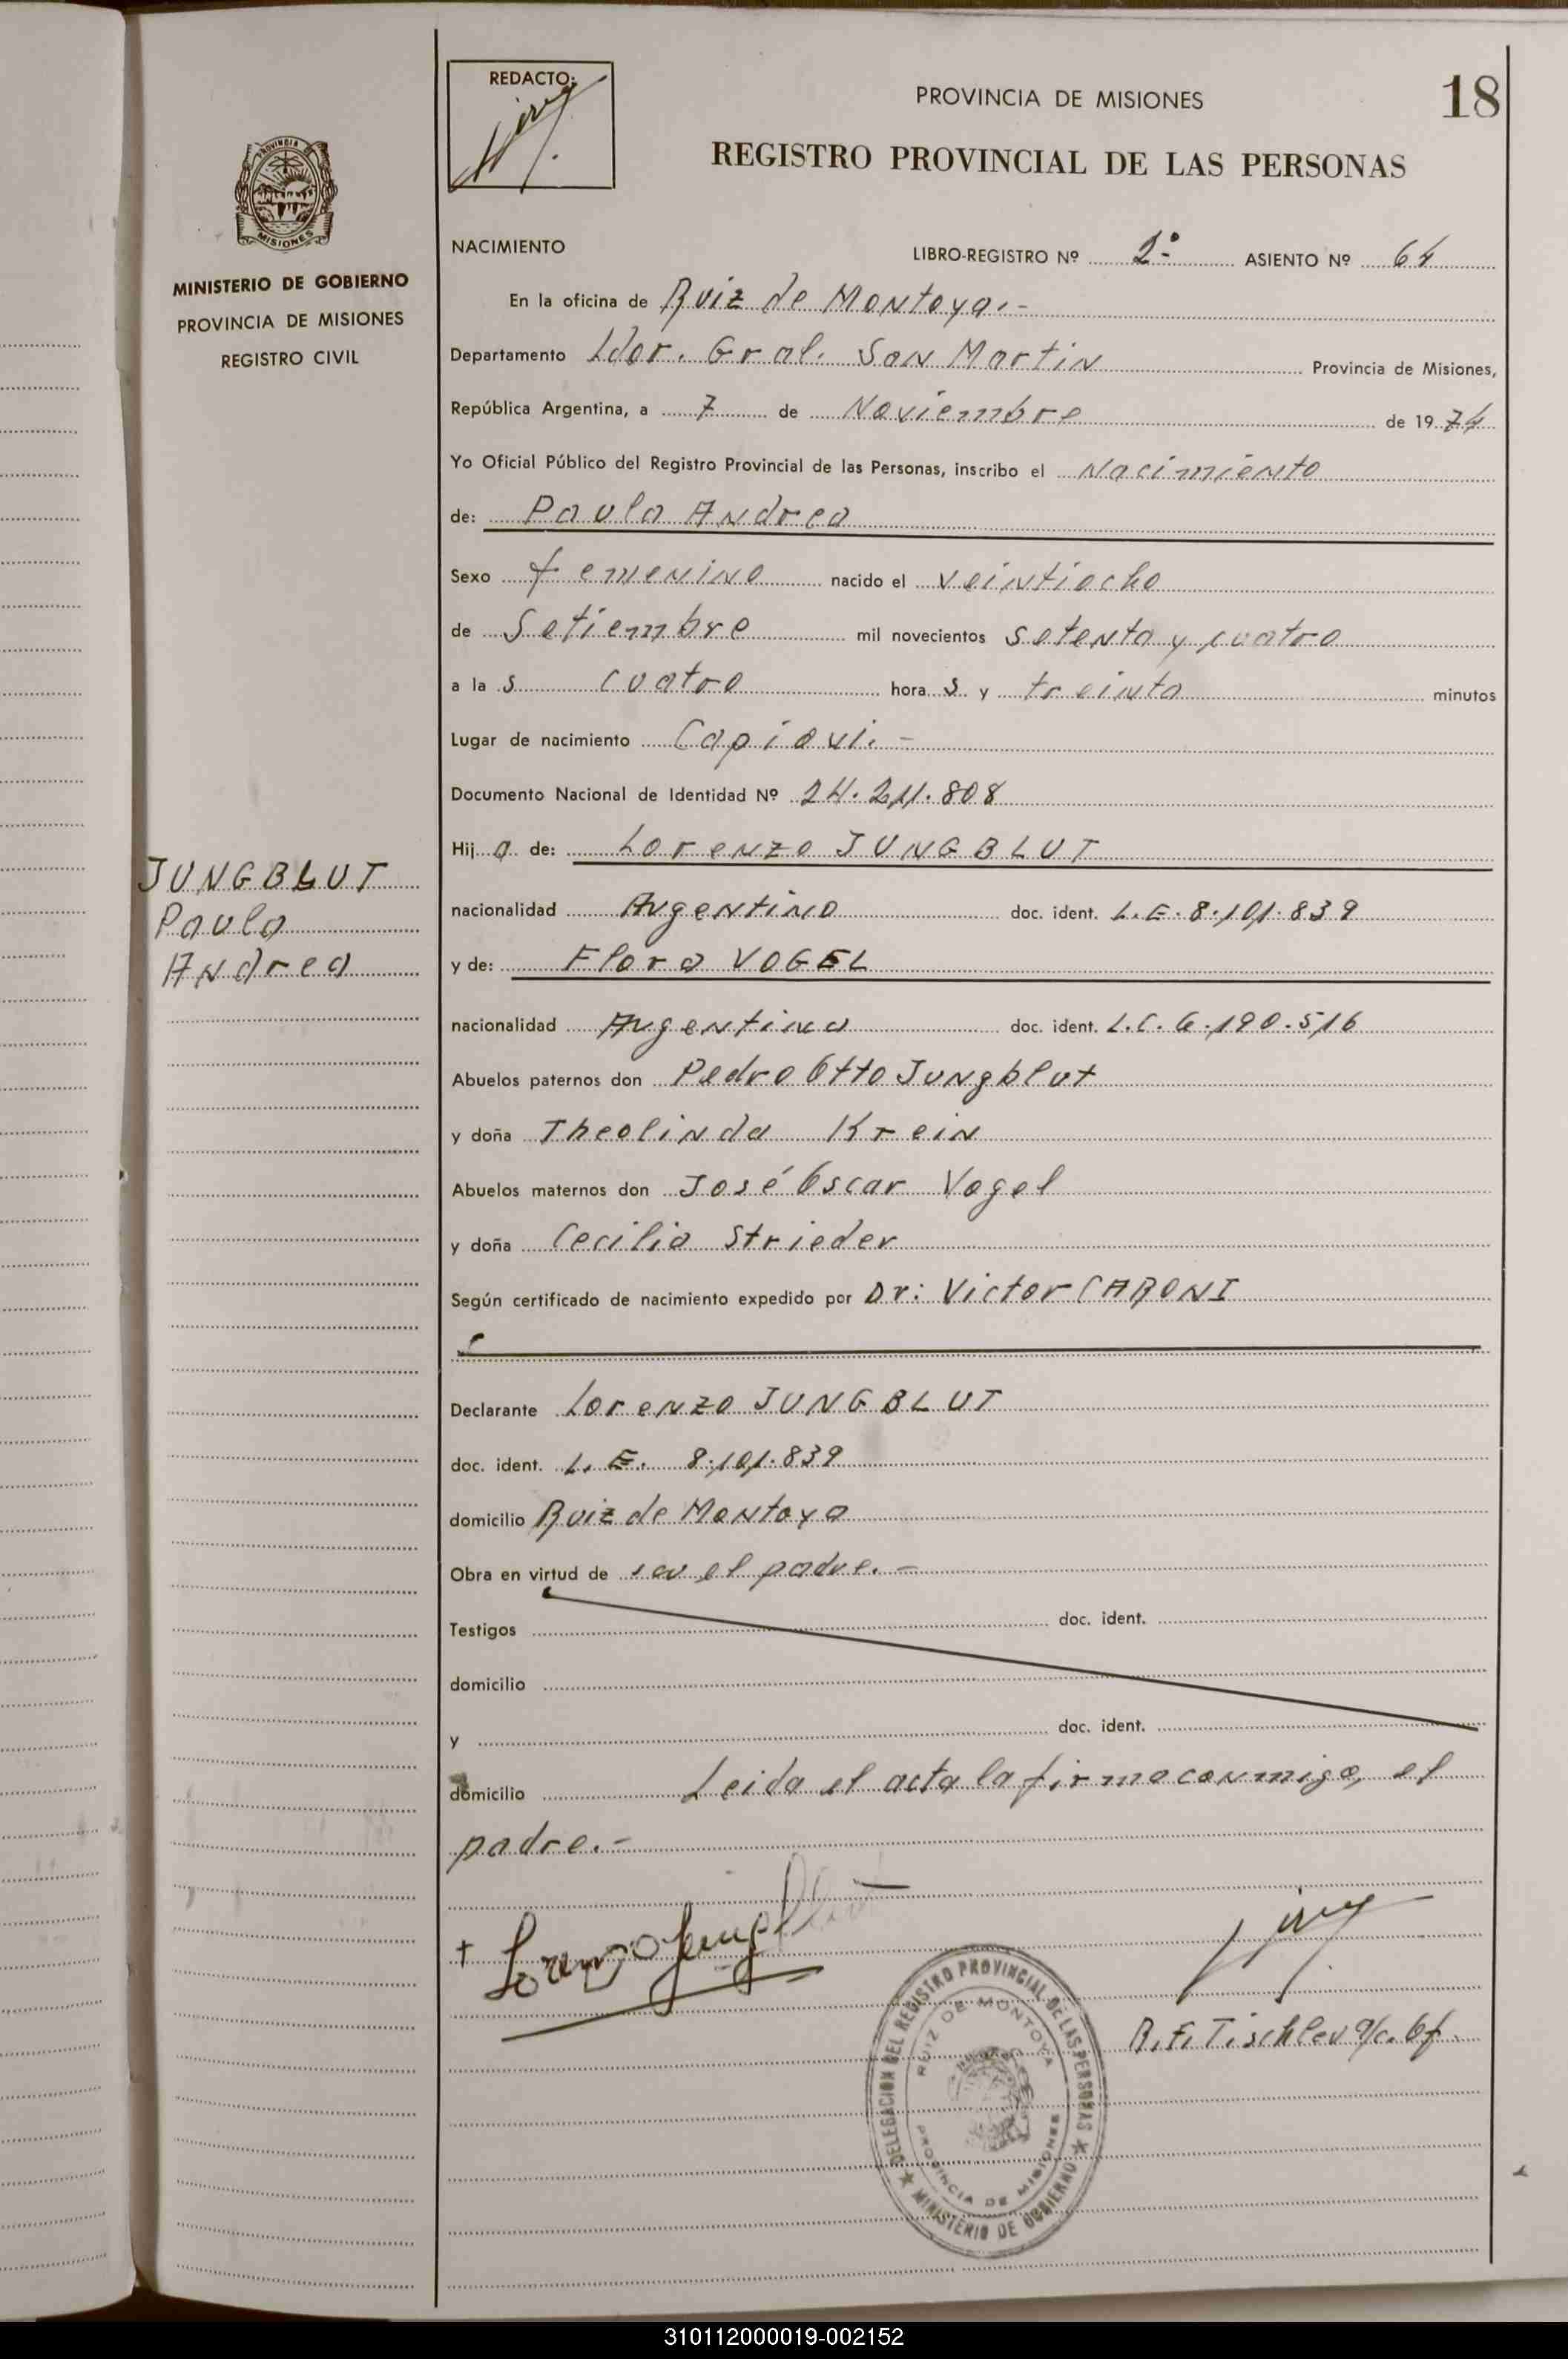 REDACTO:
PROVINCIA DE MISIONES
18
REGISTRO PROVINCIAL DE LAS PERSONAS
PROVINCIA DE
MISIONES
MINISTERIO DE GOBIERNO
PROVINCIA DE MISIONES
REGISTRO CIVIL
NACIMIENTO
LIBRO-REGISTRO Nº 2º ASIENTO Nº 64
En la oficina de Ruiz de Montoya.-
Departamento Ldor. Gral. San Martin Provincia de Misiones,
República Argentina, a 7 de Noviembre de 1974
Yo Oficial Público del Registro Provincial de las Personas, inscribo el Nacimiento
de: Paula Andrea
Sexo femenino nacido el veintiocho
de Setiembre mil novecientos setenta y cuatro
a la s cuatro hora s y treinta minutos
Lugar de nacimiento Capiovi.-
Documento Nacional de Identidad Nº 24.211.808
Hij a de: Lorenzo JUNGBLUT
JUNGBLUT
Paula
Andrea
nacionalidad Argentino doc. ident. L.E. 8.101.839
y de: Flora VOGEL
nacionalidad Argentina doc. ident. L.C. 6.190.516
Abuelos paternos don Pedro Otto Jungblut
y doña Theolinda Krein
Abuelos maternos don José Oscar Vogel
y doña Cecilia Strieder
Según certificado de nacimiento expedido por Dr: Victor CARONI
Declarante Lorenzo JUNGBLUT
doc. ident. L.E. 8.101.839
domicilio Ruiz de Montoya
Obra en virtud de ser el padre.-
Testigos doc. ident.
domicilio
y doc. ident.
domicilio Leida el acta la firma conmigo, el
padre.-
+ Lorenzo Jungblut
R.E. Tischler a/c. Of.
DELEGACION DEL REGISTRO PROVINCIAL DE LAS PERSONAS
RUIZ DE MONTOYA
PROVINCIA DE MISIONES
★ MINISTERIO DE GOBIERNO ★
310112000019-002152